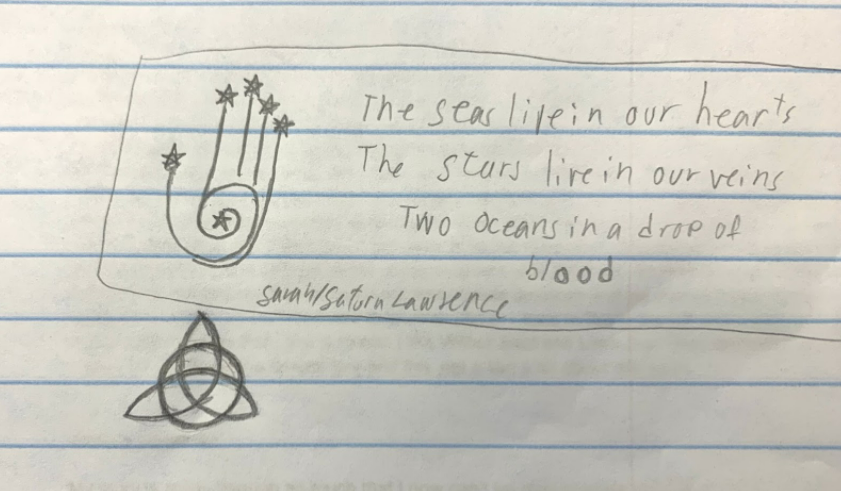 The seas live in our hearts
The stars live in our veins
Two oceans in a drop of
blood
Sarah/Saturn Lawrence